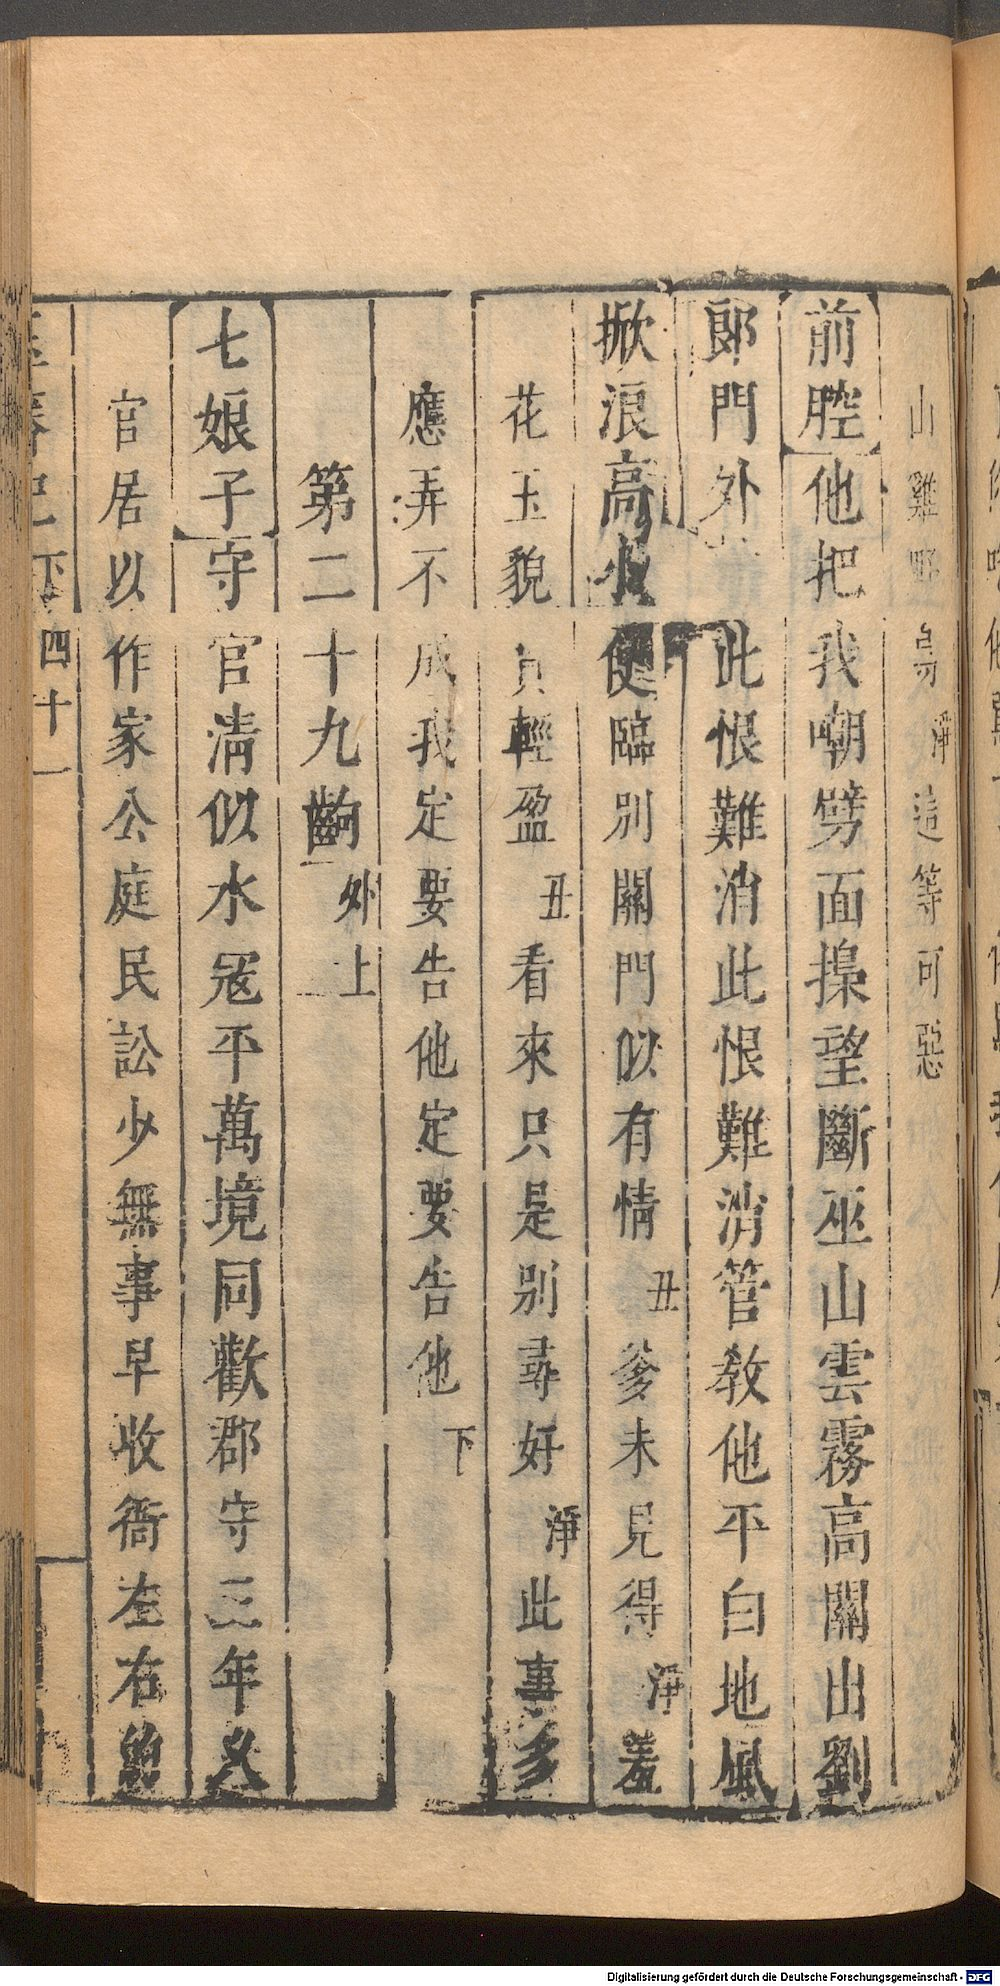 山雞野鳥淨這等可惡
前腔他把我嘲劈面搶望斷巫山雲霧高關出劉
郎門外此恨難消此恨難消管教他平白地風
掀浪高小使臨別關門似有情丑爹未見得淨羞
花玉貌貞輕盈丑看來只是別尋好淨此事多
應弄不成我定要告他定要告他下
第二十九齣外上
七娘子守官清似水冦平萬境同歡郡守三年乂
官居以作家公庭民訟少無事早收衙左右
下四十一
Digitalisierung gefördert durch die Deutsche Forschungsgemeinschaft - DFG